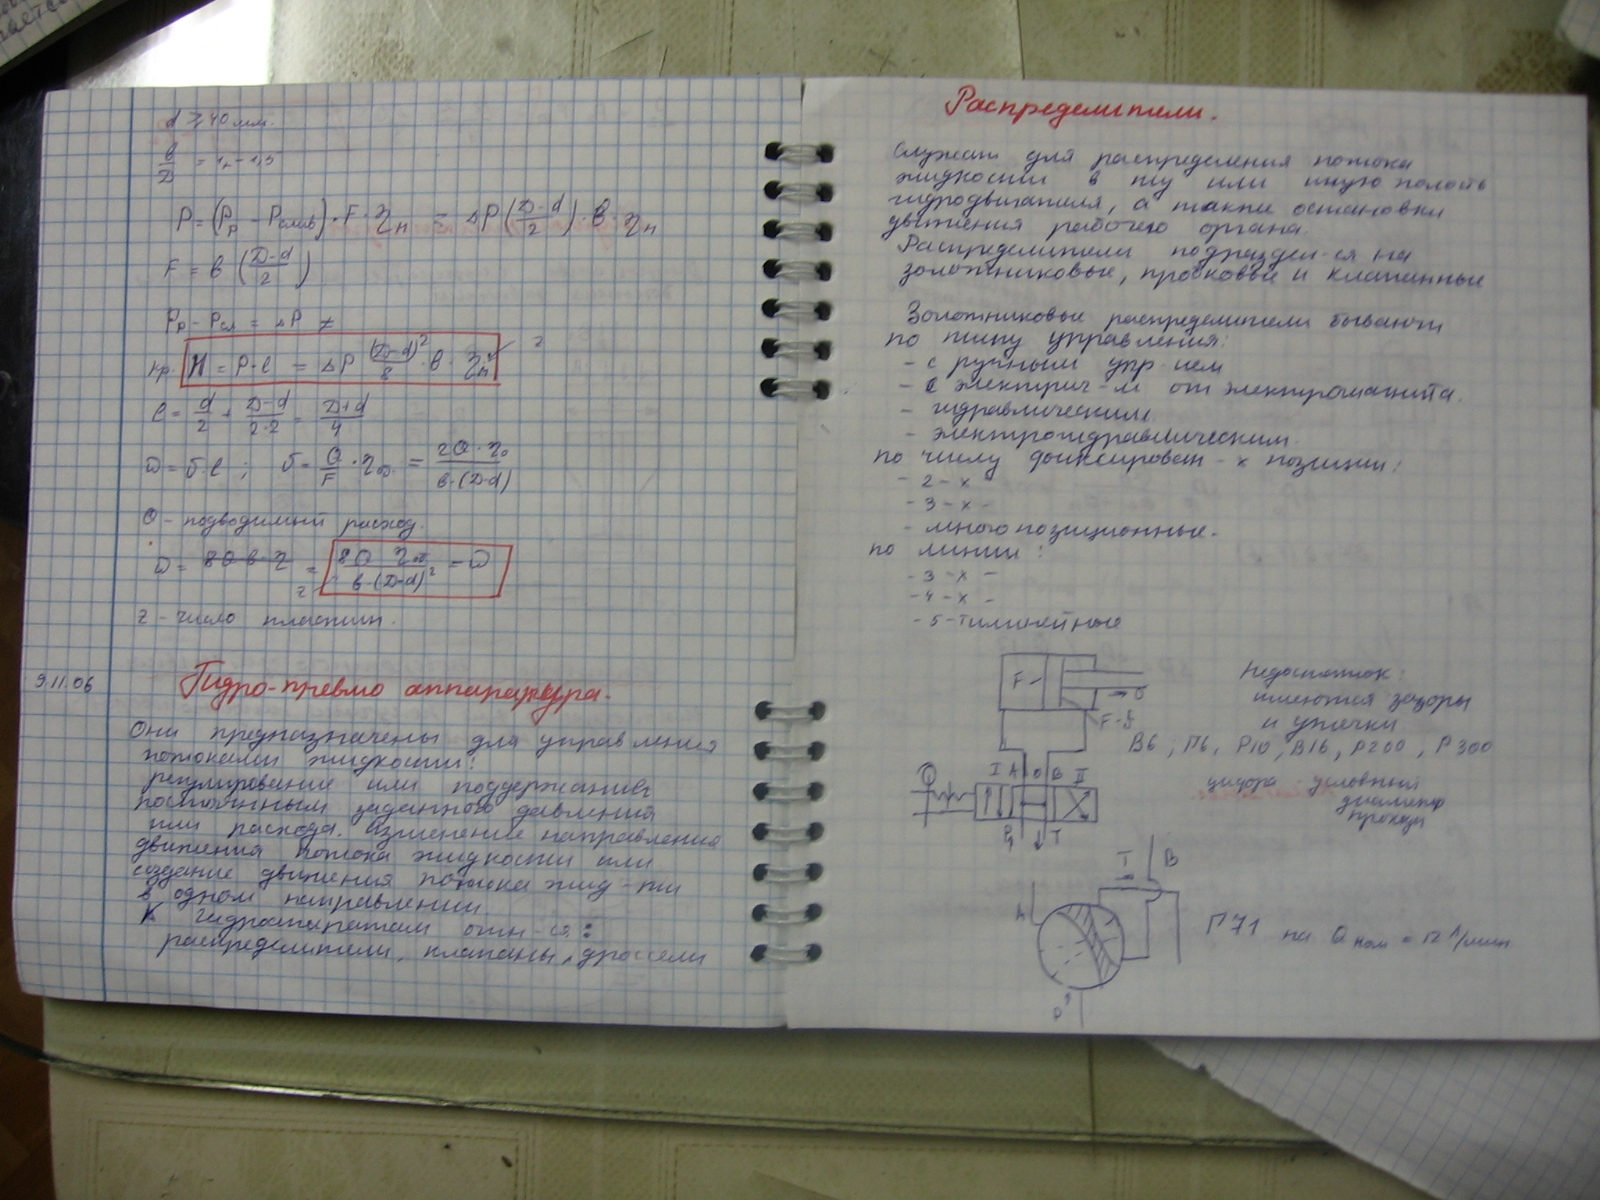 d ⩾ 40 мм.
P = (Pр - Pслив) · F · ηп = ΔP (D-d/2) · в · ηп
F = в (D-d/2)
Pр - Pсл = ΔP
кр. M = P·l = ΔP (D-d)²/8 · в · ηп
l = d/2 + D-d/2·2 = D+d/4
Q - подводимый расход.
z - число пластин.
9.11.06
Гидро-пневмо аппаратура.
Они предназначены для управления
потоками жидкости:
регулирование или поддержание
постоянным заданного давления
или расхода. Изменение направления
движения потока жидкости или
создание движения потока жид-ти
в одном направлении
К гидроаппаратам отн-ся:
распределители, клапаны, дроссели
Распределители.
Служат для распределения потока
жидкости в ту или иную полость
гидродвигателя, а также остановки
движения рабочего органа.
Распределители подраздел-ся на
золотниковые, пробковые и клапанные
Золотниковые распределители бывают
по типу управления:
- с ручным упр-ием
- с электрич-м от электромагнита.
- гидравлическим
- электрогидравлическим.
по числу фиксирован-х позиции:
- 2-х -
- 3-х -
- много позиционные.
по линии:
- 3-х -
- 4-х -
- 5-тилинейные
F
Недостаток:
имеются зазоры
и утечки
В6, П6, Р10, В16, Р200, Р300
I A B II
T
цифра - условный
диаметр
прохода
T B
A
П71 на Qном = 12 л/мин
P